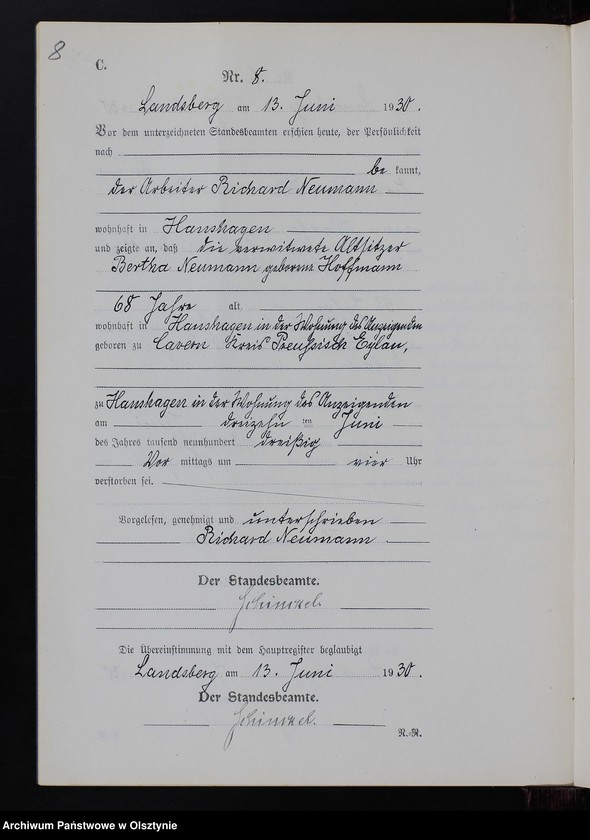 8
C.
Nr. 8.
Landsberg am 13. Juni 1930.
Vor dem unterzeichneten Standesbeamten erschien heute, der Persönlichkeit
nach
be kannt,
der Arbeiter Richard Neumann
wohnhaft in Hanshagen
und zeigte an, daß die verwitwete Altsitzer
Bertha Neumann geborene Hoffmann
68 Jahre alt
wohnhaft in Hanshagen in der Wohnung des Anzeigenden
geboren zu Cavern Kreis Preußisch Eylau,
zu Hanshagen in der Wohnung des Anzeigenden
am dreizehn ten Juni
des Jahres tausend neunhundert dreißig
Vor mittags um vier Uhr
verstorben sei.
Vorgelesen, genehmigt und unterschrieben
Richard Neumann.
Der Standesbeamte.
Schinckel.
Die Übereinstimmung mit dem Hauptregister beglaubigt
Landsberg am 13. Juni 1930.
Der Standesbeamte.
Schinckel.
N.-R.
Archiwum Państwowe w Olsztynie